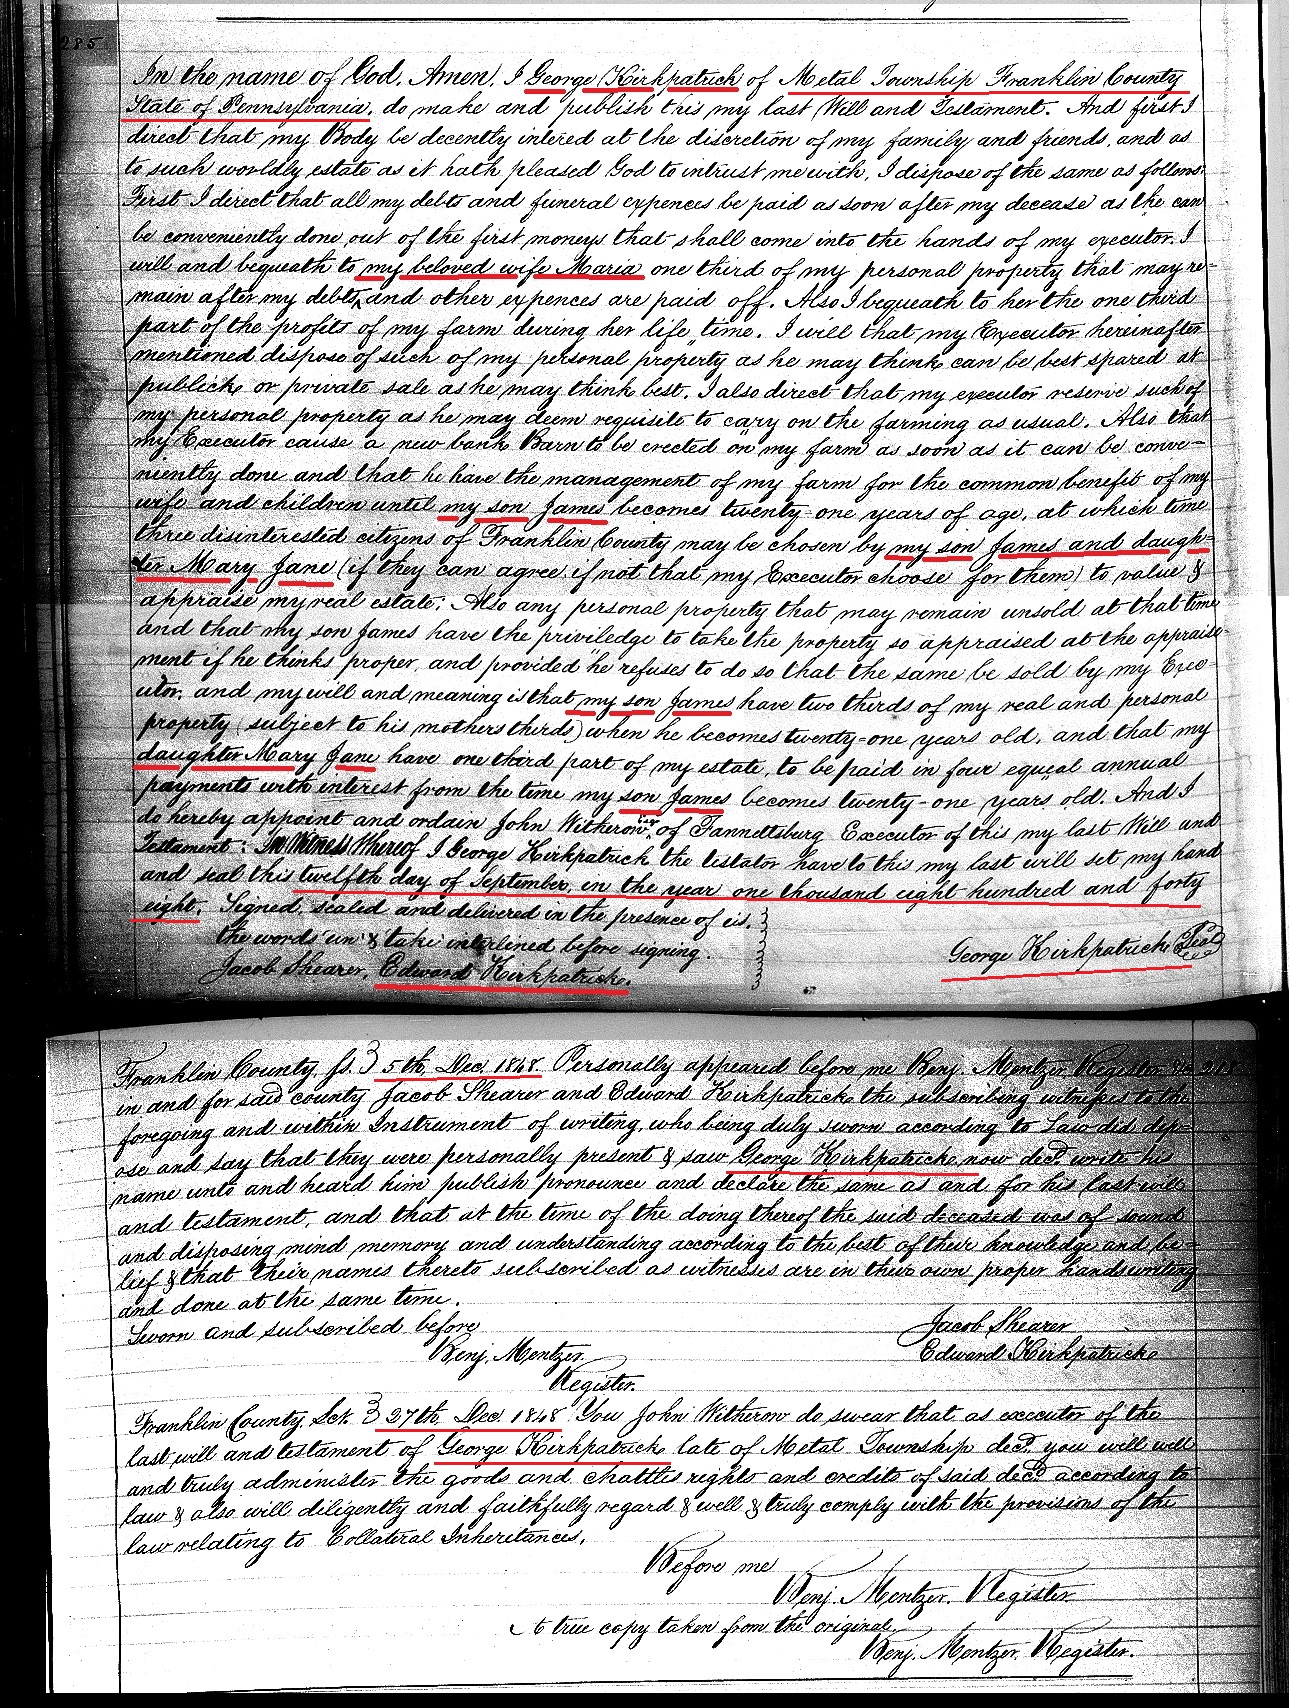 285
In the name of God. Amen. I George Kirkpatrick of Metal Township Franklin County
State of Pennsylvania, do make and publish this my last Will and Testament. And first I
direct that my Body be decently intered at the discretion of my family and friends, and as
to such worldly estate as it hath pleased God to intrust me with, I dispose of the same as follows:
First I direct that all my debts and funeral expences be paid as soon after my decease as the can
be conveniently done out of the first moneys that shall come into the hands of my executor. I
will and bequeath to my beloved wife Maria one third of my personal property that may re=
main after my debts and other expences are paid off. Also I bequeath to her the one third
part of the profits of my farm during her life time. I will that my Executor hereinafter
mentioned dispose of such of my personal property as he may think can be best spared at
publick or private sale as he may think best. I also direct that my executor reserve such of
my personal property as he may deem requisite to cary on the farming as usual. Also that
my Executor cause a new bank Barn to be erected on my farm as soon as it can be conve=
niently done and that he have the management of my farm for the common benefit of my
wife and children until my son James becomes twenty-one years of age, at which time
three disinterested citizens of Franklin County may be chosen by my son James and daugh=
ter Mary Jane (if they can agree if not that my Executor choose for them) to value &
appraise my real estate; Also any personal property that may remain unsold at that time
and that my son James have the priviledge to take the property so appraised at the appraise=
ment if he thinks proper, and provided he refuses to do so that the same be sold by my Exec=
utor, and my will and meaning is that my son James have two thirds of my real and personal
property (subject to his mothers thirds) when he becomes twenty=one years old, and that my
daughter Mary Jane have one third part of my estate, to be paid in four equal annual
payments with interest from the time my son James becomes twenty-one years old. And I
do hereby appoint and ordain John Witherow of Fannettsburg Executor of this my last Will and
Testament: In Witness Whereof I George Kirkpatrick the testator have to this my last will set my hand
and seal this twelfth day of September, in the year one thousand eight hundred and forty
eight. Signed, sealed and delivered in the presence of us.
the words 'un' & 'take' interlined before signing.
George Kirkpatrick Seal
Jacob Shearer. Edward Kirkpatrick.
Franklin County Ss. 5th Dec. 1848 Personally appeared before me Benj. Mentzer Register &c
in and for said county Jacob Shearer and Edward Kirkpatrick the subscribing witnesses to the
foregoing and within Instrument of writing, who being duly sworn according to Law did dep=
ose and say that they were personally present & saw George Kirkpatrick now decd. write his
name unto and heard him publish pronounce and declare the same as and for his last will
and testament, and that at the time of the doing thereof the said deceased was of sound
and disposing mind memory and understanding according to the best of their knowledge and be=
lief & that their names thereto subscribed as witnesses are in their own proper handswriting
and done at the same time.
Sworn and subscribed before
Jacob Shearer
Benj. Mentzer.
Edward Kirkpatrick
Register.
Franklin County Sct. 27th. Dec. 1848 You John Witherow do swear that as executor of the
last will and testament of George Kirkpatrick late of Metal Township decd. you will well
and truly administer the goods and chattles rights and credits of said decd. according to
law & also will diligently and faithfully regard & well & truly comply with the provisions of the
law relating to Collateral Inheritances.
Before me
Benj. Mentzer. Register
A true copy taken from the original
Benj. Mentzer. Register.